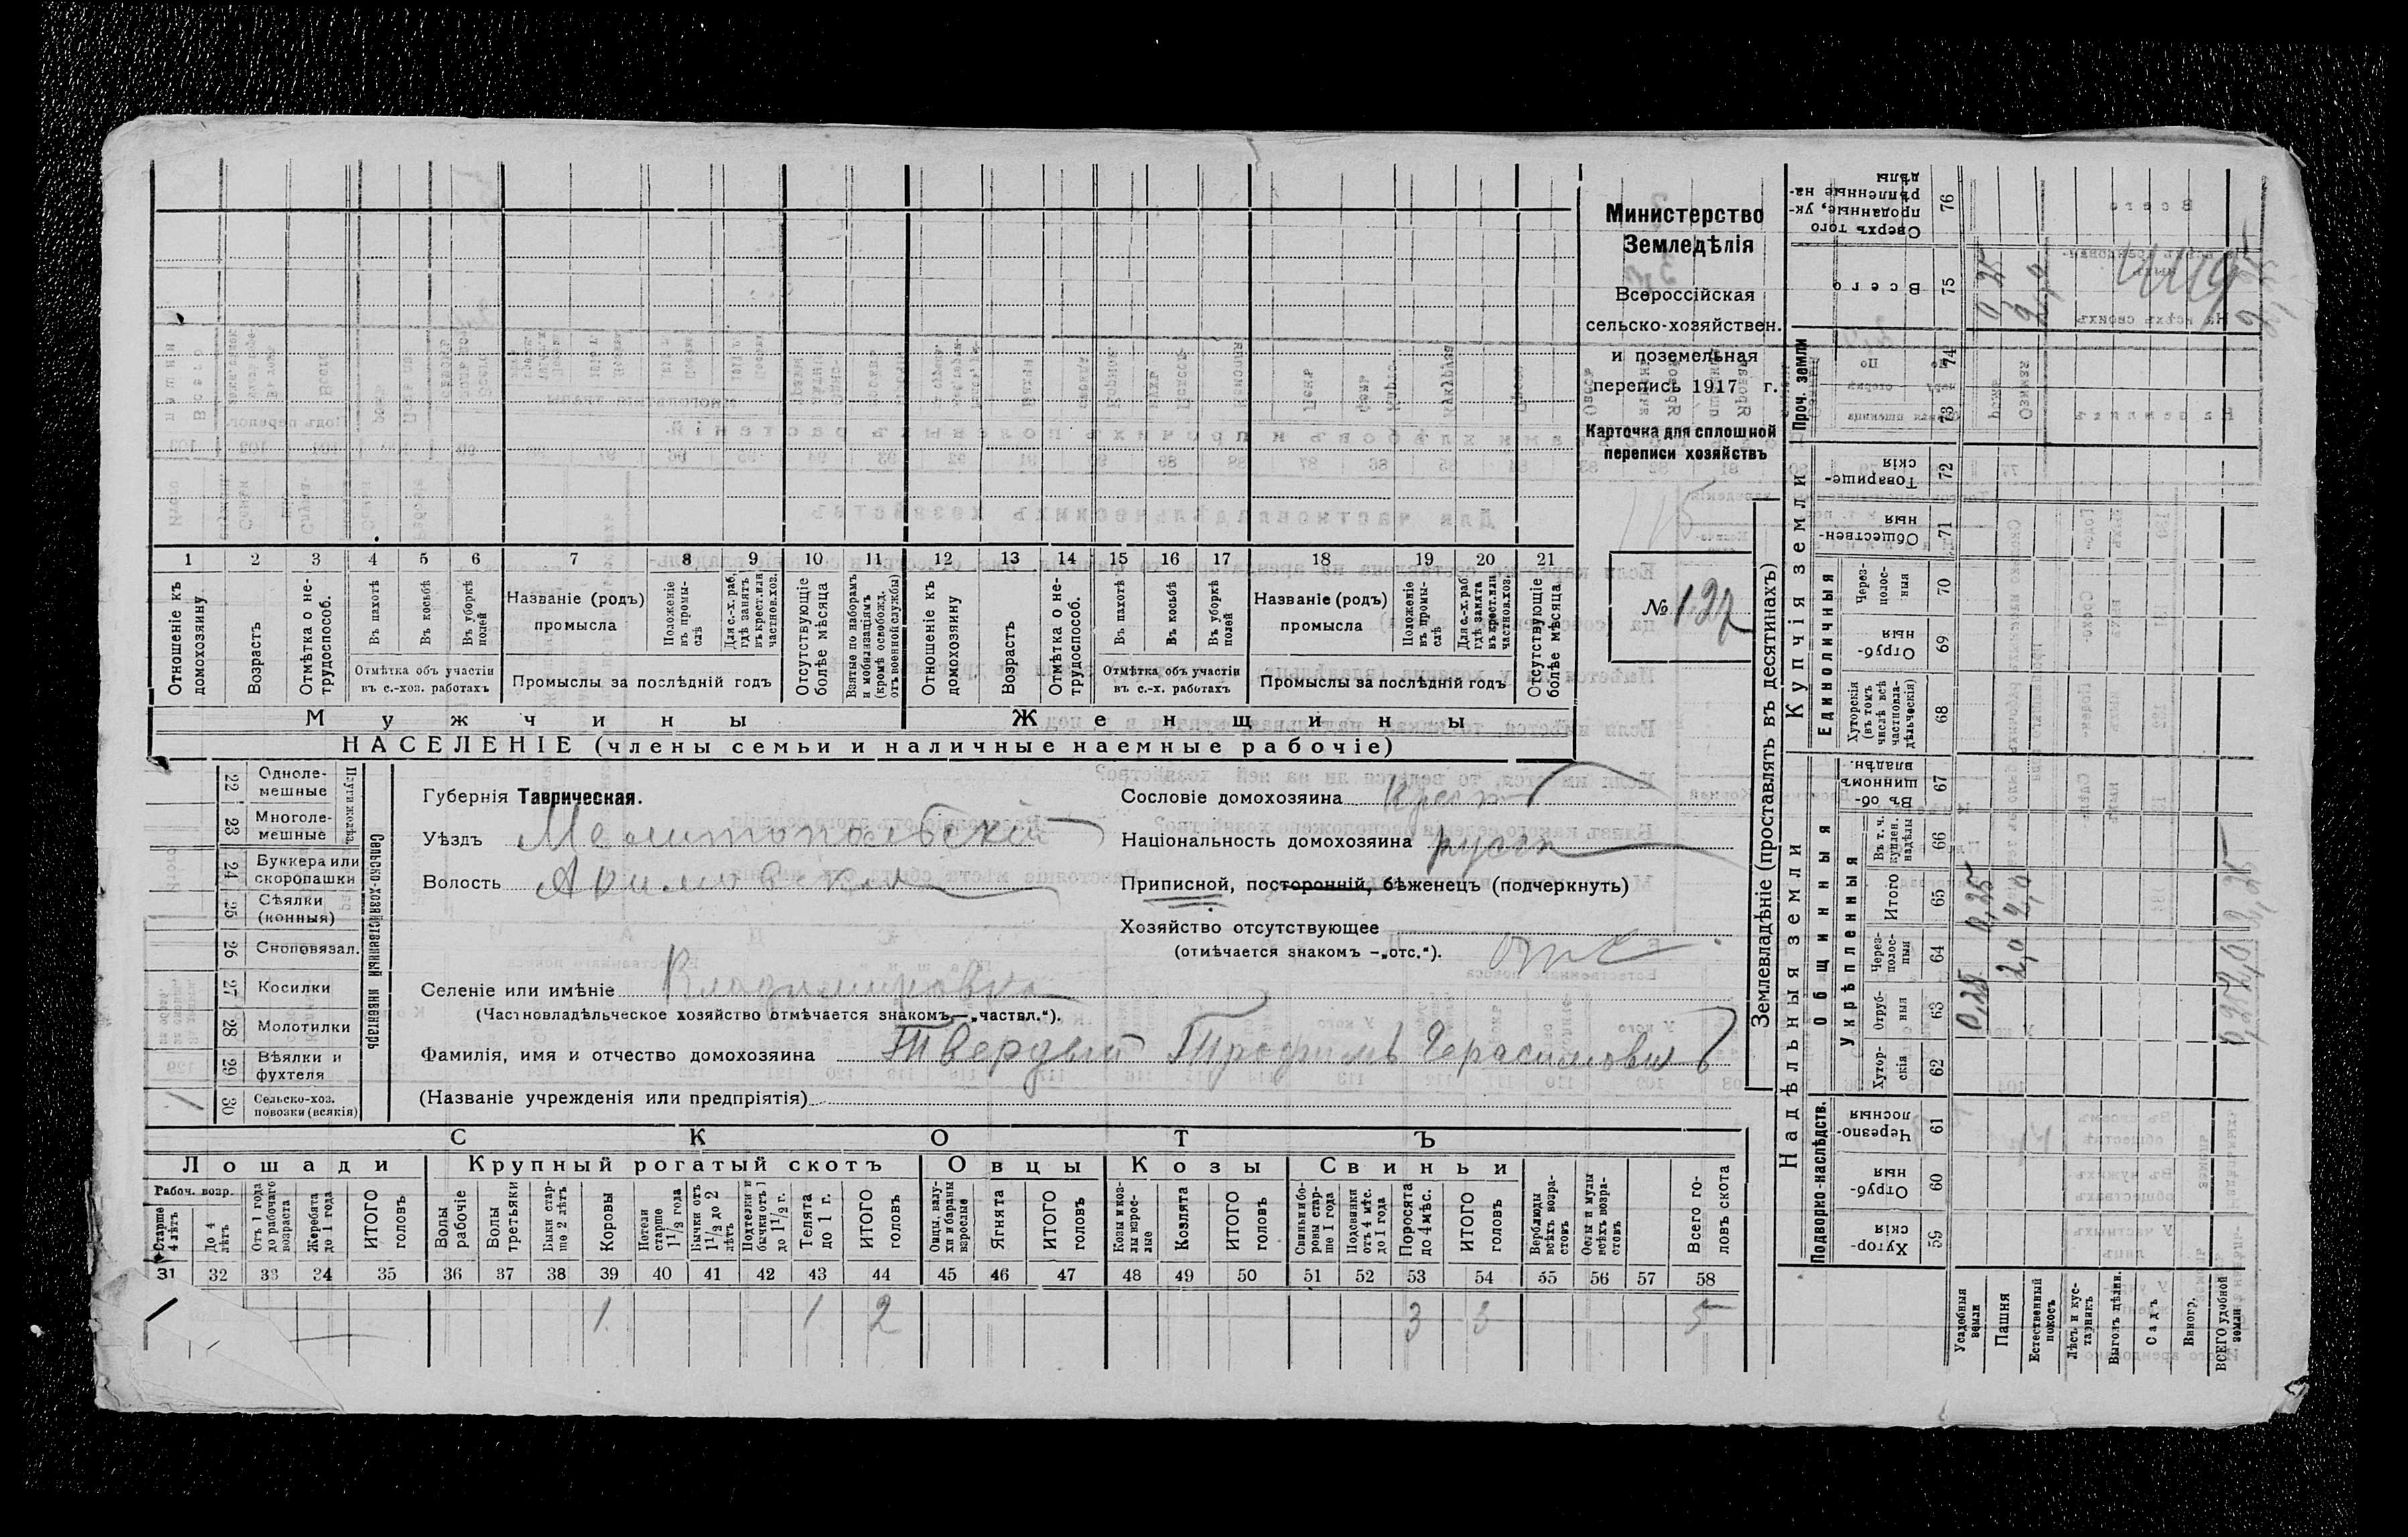 Министерство
Земледѣлія
Всероссійская
сельско-хозяйствен.
и поземельная
перепись 1917 г.
Карточка для сплошной
переписи хозяйствъ
№ 127
1 2 3 4 5 6 7 8 9 10 11 12 13 14 15 16 17 18 19 20 21
Отношеніе къ домохозяину
Возрастъ
Отмѣтка о нетрудоспособ.
Въ пахотѣ
Въ косьбѣ
Въ уборкѣ полей
Отмѣтка объ участіи
въ с.-хоз. работахъ
Названіе (родъ)
промысла
Положеніе въ промыслѣ
Для с.-х. раб. гдѣ занятъ въ крест. или частнов. хоз.
Промыслы за послѣдній годъ
Отсутствующіе болѣе мѣсяца
Взятые по наборамъ и мобилизаціямъ (кромѣ освобожд. отъ военной службы)
Отношеніе къ домохозяину
Возрастъ
Отмѣтка о нетрудоспособ.
Въ пахотѣ
Въ косьбѣ
Въ уборкѣ полей
Отмѣтка объ участіи
въ с.-х. работахъ
Названіе (родъ)
промысла
Положеніе въ промыслѣ
Для с.-х. раб. гдѣ занята въ крест. или частнов. хоз.
Промыслы за послѣдній годъ
Отсутствующіе болѣе мѣсяца
Мужчины Женщины
НАСЕЛЕНІЕ (члены семьи и наличные наемные рабочіе)
Сельско-хозяйственный инвентарь
22 Однолемешные
23 Многолемешные
24 Буккера или скоропашки
25 Сѣялки (конныя)
26 Сноповязал.
27 Косилки
28 Молотилки
29 Вѣялки и фухтеля
30 Сельско-хоз. повозки (всякія) 1
Губернія Таврическая.
Уѣздъ Мелитопольскій
Волость Акимовская
Сословіе домохозяина крест
Національность домохозяина русск
Приписной, посторонній, бѣженецъ (подчеркнуть)
Хозяйство отсутствующее
(отмѣчается знакомъ -„отс.“). отс
Селеніе или имѣніе Владимировка
(Частновладѣльческое хозяйство отмѣчается знакомъ—„частвл.“).
Фамилія, имя и отчество домохозяина Твердый Трофимъ Герасимович
(Названіе учрежденія или предпріятія)
СКОТЪ
Лошади Крупный рогатый скотъ Овцы Козы Свиньи
Рабоч. возр.
Старше 4 лѣтъ
До 4 лѣтъ
Отъ 1 года до рабочаго возраста
Жеребята до 1 года
ИТОГО головъ
Волы рабочіе
Волы третьяки
Быки старше 2 лѣтъ
Коровы
Нетели старше 1 1/2 года
Бычки отъ 1 1/2 до 2 лѣтъ
Подтелки и бычки отъ 1 до 1 1/2 г.
Телята до 1 г.
ИТОГО головъ
Овцы, валухи и бараны взрослые
Ягнята
ИТОГО головъ
Козы и козлы взрослые
Козлята
ИТОГО головъ
Свиньи и боровы старше 1 года
Подсвинки отъ 4 мѣс. до 1 года
Поросята до 4 мѣс.
ИТОГО головъ
Верблюды всѣхъ возрастовъ
Ослы и мулы всѣхъ возрастовъ
Всего головъ скота
31 32 33 34 35 36 37 38 39 40 41 42 43 44 45 46 47 48 49 50 51 52 53 54 55 56 57 58
1 1 2 3 3 5
Землевладѣніе (проставлять въ десятинахъ)
Надѣльныя земли Купчія земли Проч. земли
Подворно-наслѣдств.
Общинныя
Укрѣпленныя
Единоличныя
Хуторскія 59
Отрубныя 60
Черезполосныя 61
Хуторскія 62
Отрубныя 63
Черезполосныя 64
Итого 65
Въ т. ч. куплен. надѣлы 66
Въ общинномъ владѣн. 67
Хуторскія (въ томъ числѣ всѣ частновладѣльческія) 68
Отрубныя 69
Черезполосныя 70
Общественныя 71
Товарищескія 72
73
74
Всего 75
Сверхъ того проданные, укрѣпленные надѣлы 76
Усадебныя земли 0,25 0,25 0,25
Пашня 2,0 2,0 2,0
Естественный покосъ
Лѣсъ и кустарникъ
Выгонъ цѣлин.
Садъ
Виногр.
ВСЕГО удобной земли 0,25 2,0 2,25